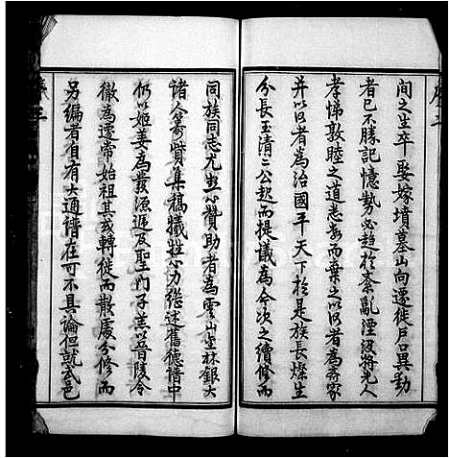 序二
間之生卒娶嫁墳墓山向遷徙戶口異動
者已不勝記憶勢必趨於紊亂湮没將先人
孝悌敦睦之道悉而棄之以以者為齊家
并以以者為治國平天下於是族長燦生
分長玉清二公起而提議為今次之續修而
同族同志尤出心贊助者為雲山生林銀大
諸人籌貲集稿犧牲心力張述舊德譜中
仍以姬姜為發源遞及聖門子羔以晉陵令
徵為遷常始祖其或轉徙而散處分修而
另編者自有大通譜在可不具論但就武邑